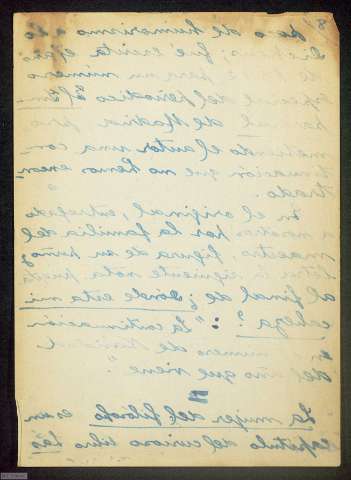 8
so o del humorismo a lo
Dickens, fué escrita el año
de para un número
especial del periódico El Im-
parcial de Madrid, pro
metiendo el autor una con-
tinuación que no hemos encon-
trado.
En el original, entregado
a nosotros por la familia del
maestro, figura de su puño y
letra la siguiente nota puesta
al final de ¿Dónde está mi
cabeza?: "La continuación
en el número de Navidad
del año que viene".
La mujer del filósofo es un
capítulo del curioso libro Las